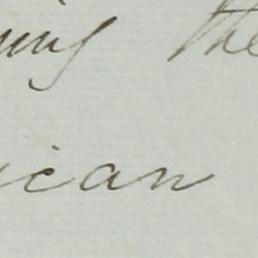 ning the
ican